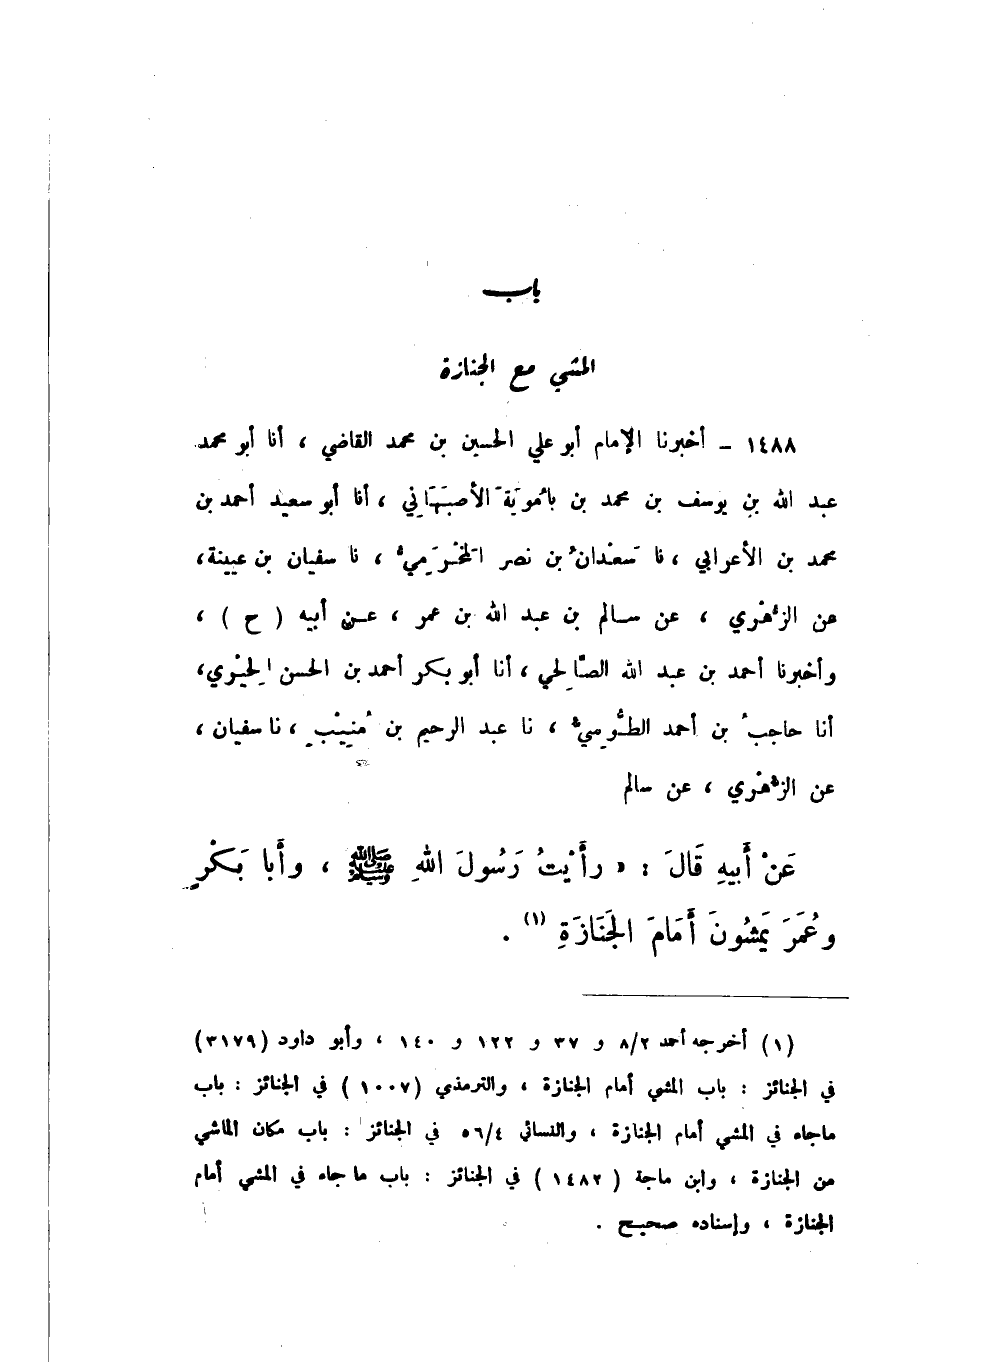 باب
المشي مع الجنازة
١٤٨٨ - أخبرنا الإمام أبو علي الحسين بن محمد القاضي ، أنا أبو محمد
عبد الله بن يوسف بن محمد بن بامُويَةَ الأصبَهَاني ، أنا أبو سعيد أحمد بن
محمد بن الأعرابي ، نا سَعْدانُ بن نصر المَخْرَمِيُّ ، نا سفيان بن عيينة،
عن الزُّهْري ، عن سالم بن عبد الله بن عمر ، عن أبيه ( ح ) ،
وأخبرنا أحمد بن عبد الله الصَّالِحي ، أنا أبو بكر أحمد بن الحسن الحِيْري،
أنا حاجبُ بن أحمد الطُّوسِيُّ ، نا عبد الرحيم بن مُنِيْبٍ ، نا سفيان ،
عن الزُّهْري ، عن سالم
عَنْ أَبيهِ قَالَ : « رأَيْتُ رَسُولَ اللهِ ﷺ ، وأَبا بَكْرٍ
وعُمَرَ يَمشُونَ أَمَامَ الجَنَازَةِ (١) .
(١) أخرجه أحمد ٨/٢ و ٣٧ و ١٢٢ و ١٤٠ ، وأبو داود (٣١٧٩)
في الجنائز : باب المشي أمام الجنازة ، والترمذي (١٠٠٧) في الجنائز : باب
ماجاء في المشي أمام الجنازة ، والنسائي ٥٦/٤ في الجنائز : باب مكان الماشي
من الجنازة ، وابن ماجة ( ١٤٨٢ ) في الجنائز : باب ما جاء في المشي أمام
الجنازة ، وإسناده صحيح .